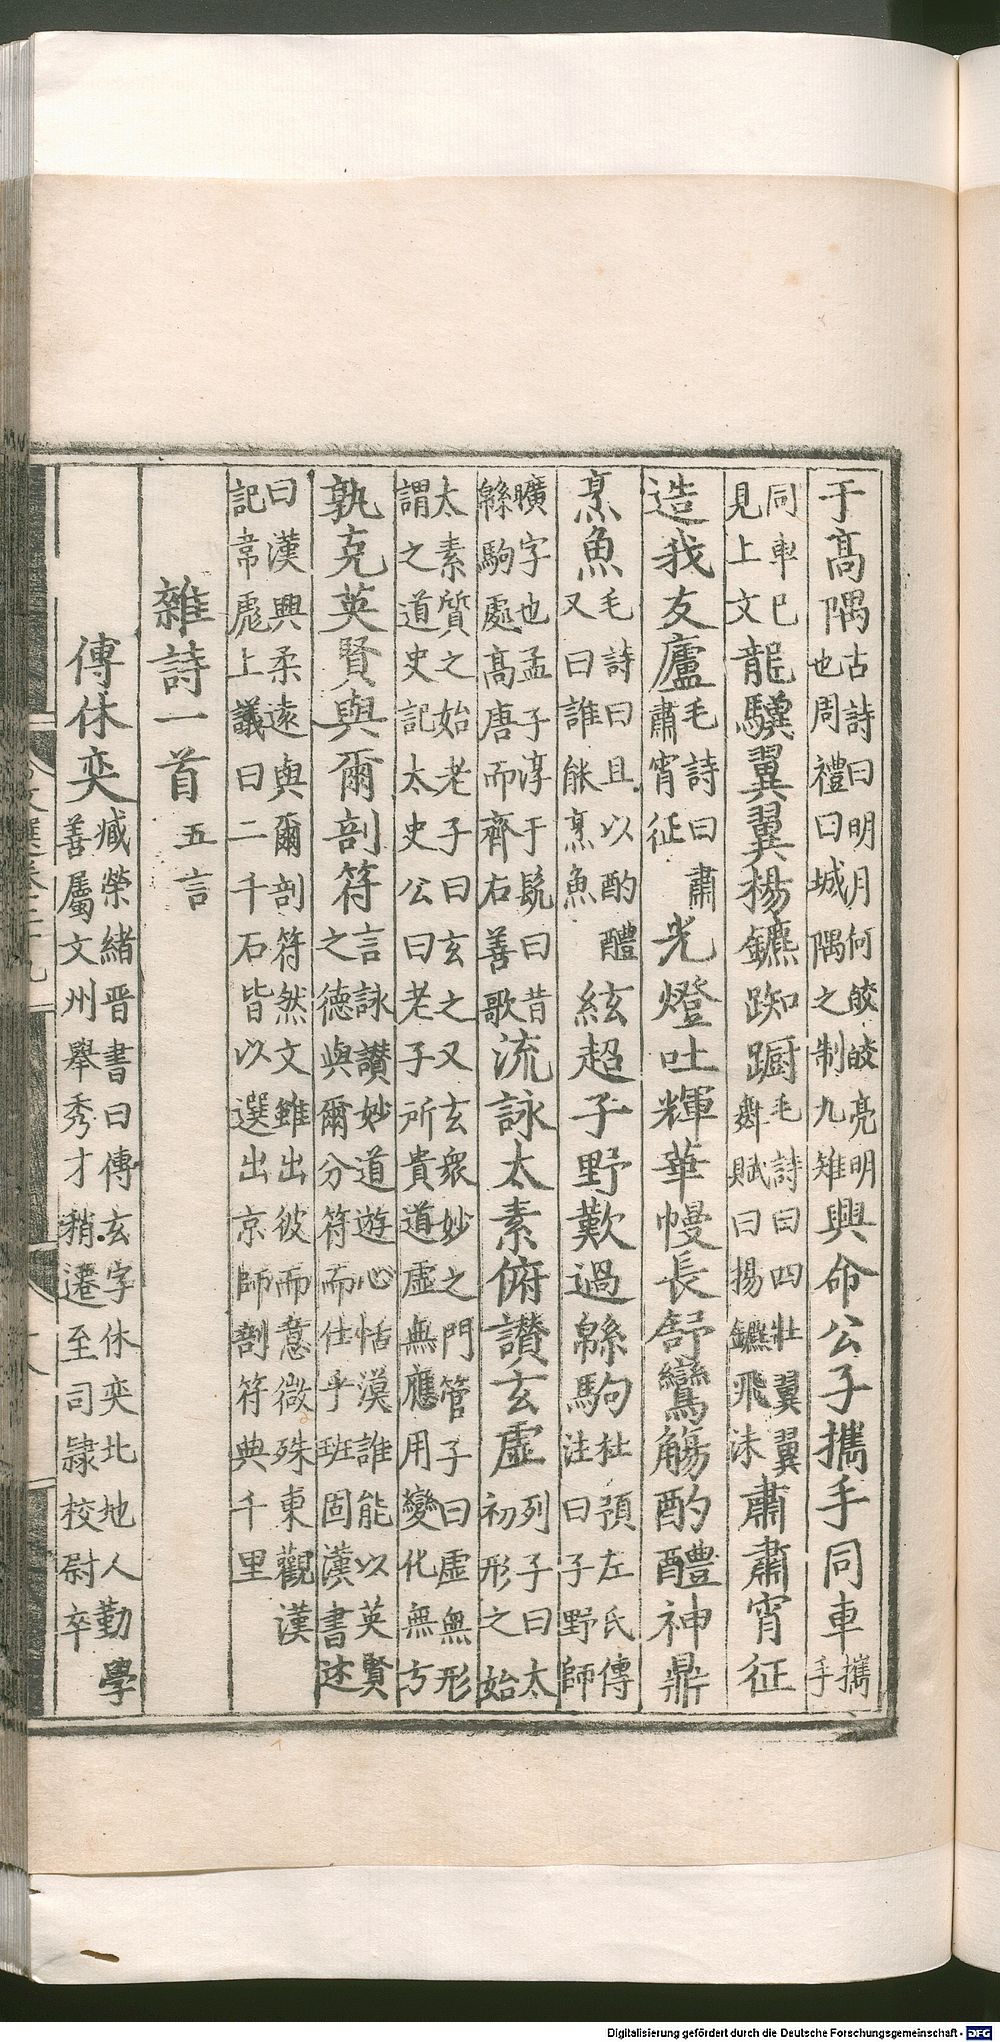 于髙隅古詩曰明月何皎皎亮明也周禮曰城隅之制九雉興命公子攜手同車攜手
同車已見上文龍驥翼翼揚鑣踟躕毛詩曰四牡翼翼舞賦曰揚鑣飛沬肅肅宵征
造我友廬毛詩曰肅肅宵征光燈吐輝華幔長舒鸞觴酌醴神鼎
烹魚毛詩曰且以酌醴又曰誰能烹魚絃超子野歎過緜駒杜預左氏傳注曰子野師
曠字也孟子淳于髡曰昔緜駒處髙唐而齊右善歌流詠太素俯讃玄虛列子曰太初形之始
太素質之始老子曰玄之又玄衆妙之門管子曰虛無形謂之道史記太史公曰老子所貴道虛無應用變化無方
孰克英賢與爾剖符言詠讃妙道遊心恬漠誰能以英賢之德與爾分符而仕乎班固漢書述
曰漢興柔遠與爾剖符然文雖出彼而意微殊東觀漢記韋彪上議曰二千石皆以選出京師剖符典千里
雜詩一首五言
傳休奕臧榮緒晉書曰傳玄字休奕北地人勤學善屬文州舉秀才稍遷至司隸校尉卒
Digitalisierung gefördert durch die Deutsche Forschungsgemeinschaft - DFG